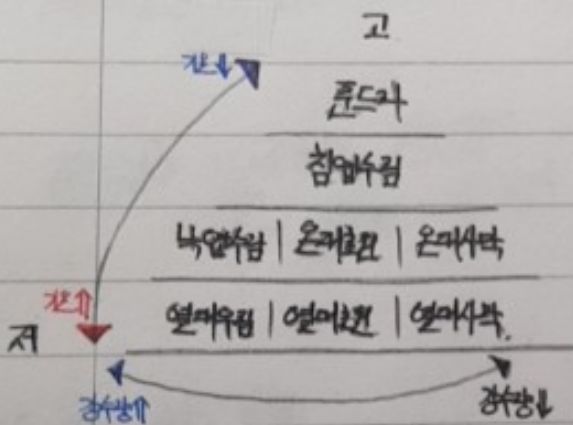 고
기온↓
툰드라
침엽수림
낙엽수림 | 온대초원 | 온대사막
기온⇑
열대우림 | 열대초원 | 열대사막.
저
강수량⇑
강수량↓